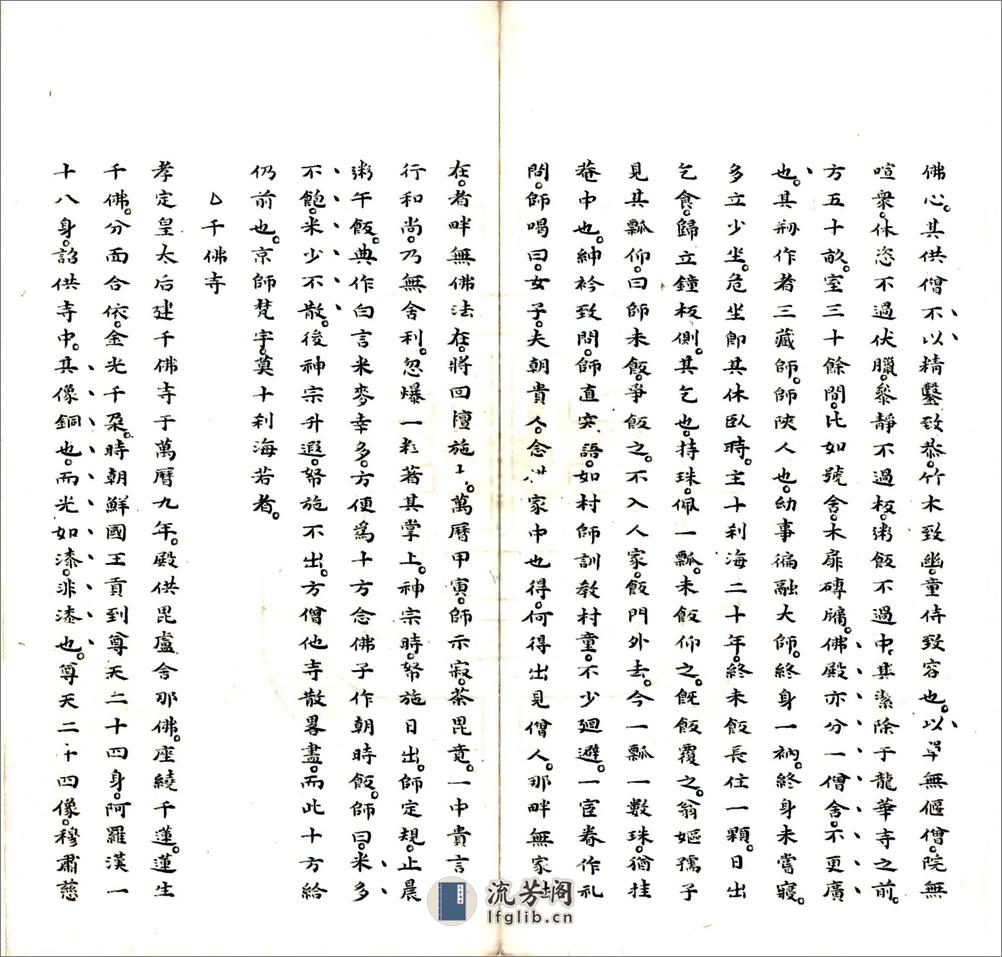 佛心。其供僧不以精鑿致恭。竹木致幽。童侍致容也。以單無偃僧。院無
喧衆。休恣不過伏臘。叅靜不過板。粥飯不過中。其潔除于龍華寺之前。
方五十畝。室三十餘間。比如號舍。木扉磚牖。佛殿亦分一僧舍。不更廣
也。其剏作者三藏師。師陝人也。幼事徧融大師。終身一衲。終身未嘗寢。
多立少坐。危坐即其休臥時。主十刹海二十年。終未飯長住一顆。日出
乞食。歸立鐘板側。其乞也。持珠。佩一瓢。未飯仰之。旣飯覆之。翁嫗孺子
見其瓢仰。曰師未飯。爭飯之。不入人家。飯門外去。今一瓢一數珠。猶挂
菴中也。紳衿致問。師直突語。如村師訓敎村童。不少廻避。一宦眷作礼
問。師喝曰。女子。夫朝貴人。念 家中也得。何得出見僧人。那畔無家
在。者畔無佛法在。將回檀施 。萬曆甲寅。師示寂。荼毘竟。一中貴言
行和尚。乃無舍利。忽爆一粒著其掌上。神宗時。帑施日出。師定規。止晨
粥午飯。典作白言米麥幸多。方便爲十方念佛子作朝時飯。師曰。米多
不飽。米少不散。後神宗升遐。帑施不出。方僧他寺散畧盡。而此十方給
仍前也。京師梵宇。莫十刹海若者。
△千佛寺
孝定皇太后建千佛寺于萬曆九年。殿供毘盧舍那佛。座繞千蓮。蓮生
千佛。分面合依。金光千朶。時朝鮮國王貢到尊天二十四身。阿羅漢一
十八身。詔供寺中。其像銅也。而光如漆。非漆也。尊天二十四像。穆肅慈
流芳閣
lfglib.cn